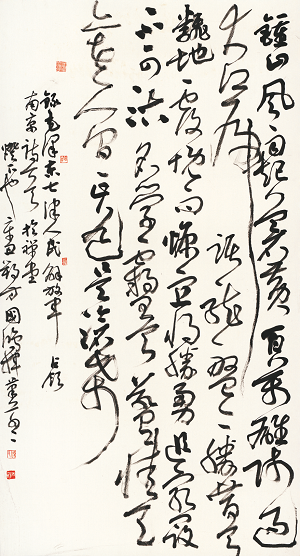 鍾山風雨起蒼黃百万雄師過
大江虎踞龍盤今勝昔天
翻地覆慨而慷宜將勝勇追窮寇
不可沽名學霸王天若有情天
亦老人間正道是滄桑
錄毛澤東七律人民解放軍占領
南京詩一首於
燈下也